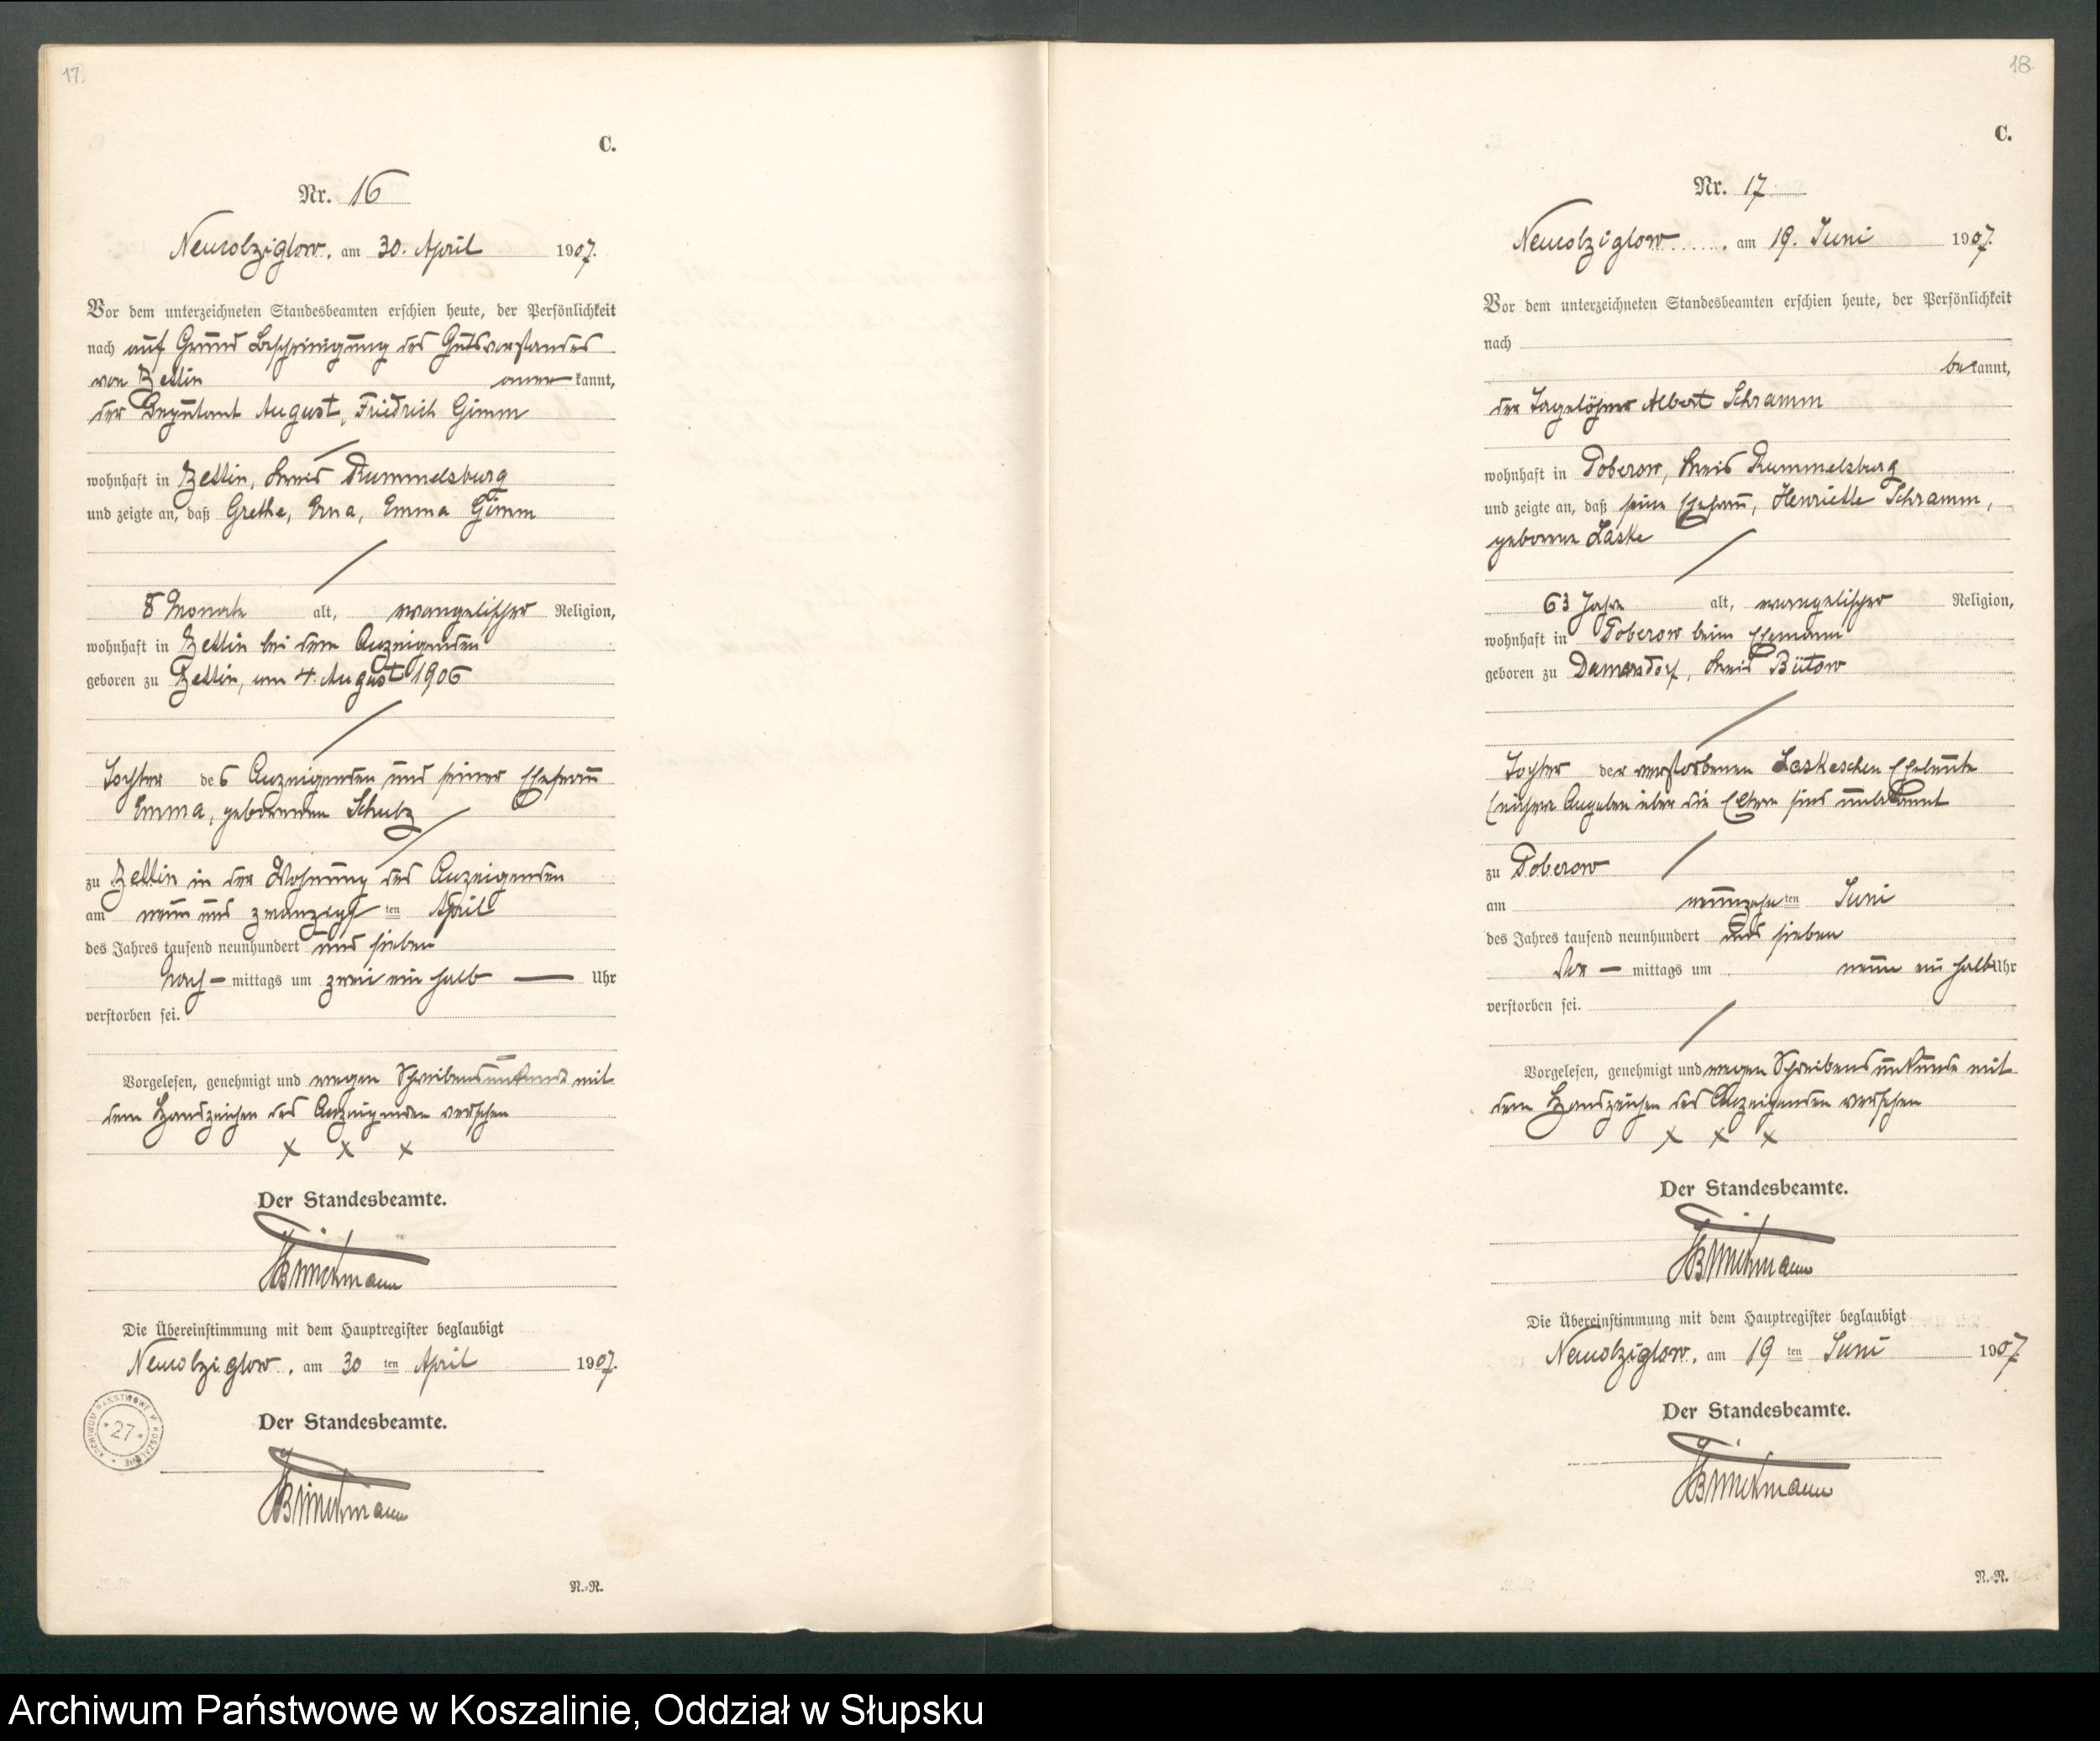 17.
C.
Nr. 16
Neukolziglow, am 30. April 1907.
Vor dem unterzeichneten Standesbeamten erschien heute, der Persönlichkeit
nach auf Grund Bescheinigung des Gutsvorstandes
von Zettin anerkannt,
der Deputant August, Friedrich Gimm
wohnhaft in Zettin, Kreis Rummelsburg
und zeigte an, daß Grethe, Erna, Emma Gimm
8 Monate alt, evangelischer Religion,
wohnhaft in Zettin bei dem Anzeigenden
geboren zu Zettin, am 4. August 1906
Tochter des Anzeigenden und seiner Ehefrau
Emma, geborenen Schulz
zu Zettin in der Wohnung des Anzeigenden
am neun und zwanzigsten April
des Jahres tausend neunhundert und sieben
Nach – mittags um zwei ein halb — Uhr
verstorben sei.
Vorgelesen, genehmigt und wegen Schreibensunkunde mit
dem Handzeichen des Anzeigenden versehen
x x x
Der Standesbeamte.
Brinckmann
Die Übereinstimmung mit dem Hauptregister beglaubigt
am 30 ten April 1907.
Der Standesbeamte.
Brinckmann
ARCHIWUM PAŃSTWOWE W KOSZALINIE
* 27 *
N.-R.
18.
C.
Nr. 17
am 19. Juni 1907.
Vor dem unterzeichneten Standesbeamten erschien heute, der Persönlichkeit
nach
bekannt,
der Tagelöhner Albert Schramm
wohnhaft in Poberow, Kreis Rummelsburg
und zeigte an, daß seine Ehefrau, Henriette Schramm,
geborene Laske
63 Jahre alt, evangelischer Religion,
wohnhaft in Poberow beim Ehemann
geboren zu Damersdorf, Kreis Bütow
Tochter der verstorbenen Laskeschen Eheleute
(nähere Angaben über die Eltern sind unbekannt
zu Poberow
am neunzehnten Juni
des Jahres tausend neunhundert und sieben
Vor – mittags um neun ein halb Uhr
verstorben sei.
Vorgelesen, genehmigt und wegen Schreibensunkunde mit
dem Handzeichen des Anzeigenden versehen
x x x
Der Standesbeamte.
Brinckmann
Die Übereinstimmung mit dem Hauptregister beglaubigt
am 19 ten Juni 1907.
Der Standesbeamte.
Brinckmann
N.-R.
Archiwum Państwowe w Koszalinie, Oddział w Słupsku